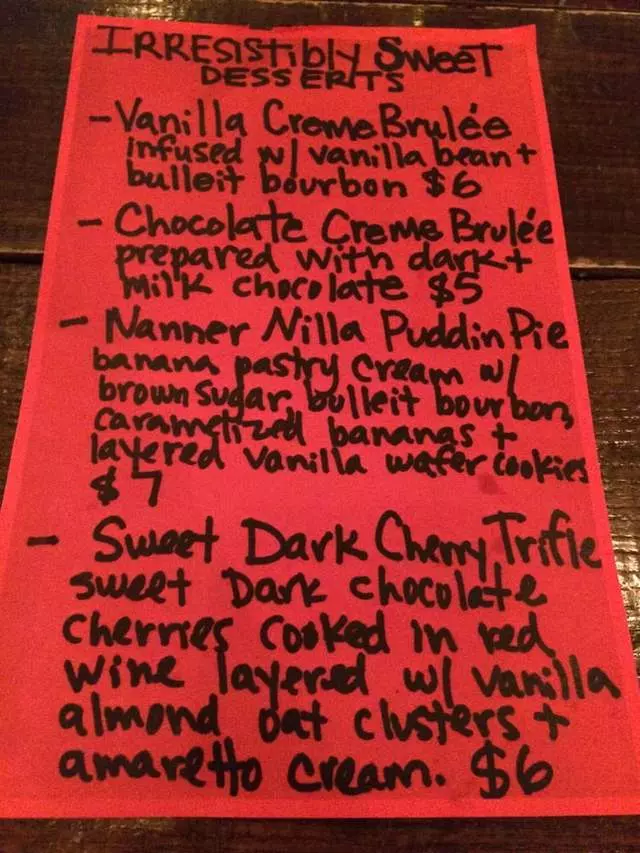 IRRESIStibly Sweet
DESSERTS
- Vanilla Creme Brulée
infused w/ vanilla bean +
bulleit bourbon $6
- Chocolate Creme Brulée
prepared with dark +
milk chocolate $5
- Nanner Nilla Puddin Pie
banana pastry cream w/
brown sugar, bulleit bourbon,
caramelized bananas +
layered vanilla wafer cookies
$7
- Sweet Dark Cherry Trifle
sweet Dark chocolate
cherries cooked in red
wine layered w/ vanilla
almond oat clusters +
amaretto cream. $6